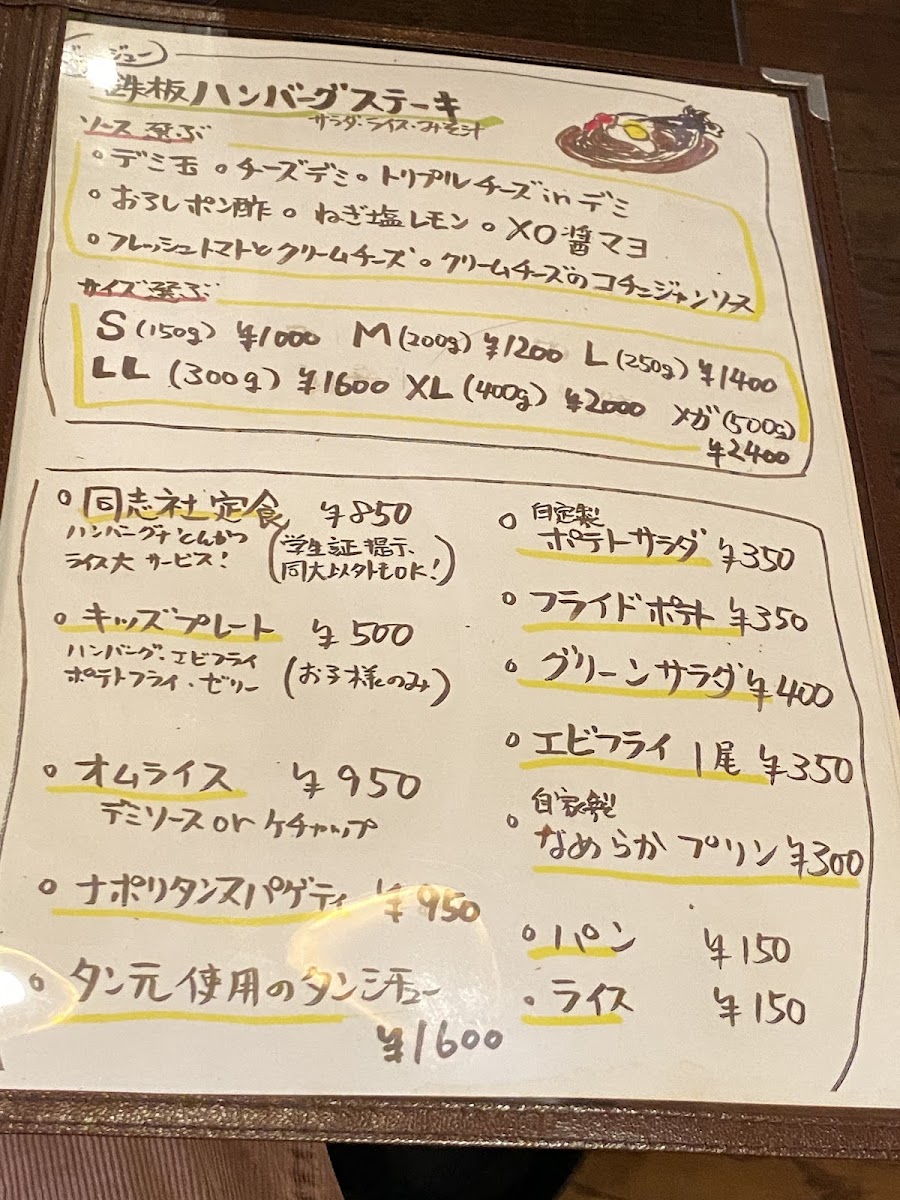 ジュー
鉄板ハンバーグステーキ
サラダ・ライス・みそ汁
ソース選ぶ
◦デミ玉 ◦チーズデミ ◦トリプルチーズinデミ
◦おろしポン酢 ◦ねぎ塩レモン ◦XO醤マヨ
◦フレッシュトマトとクリームチーズ ◦クリームチーズのコチュジャンソース
サイズ選ぶ
S(150g) ¥1000 M(200g) ¥1200 L(250g) ¥1400
LL(300g) ¥1600 XL(400g) ¥2000 メガ(500g)
¥2400
◦同志社定食 ¥850
ハンバーグ+とんかつ
ライス大サービス!
(学生証提示、
同大以外もOK!)
◦キッズプレート ¥500
ハンバーグ・エビフライ
ポテトフライ・ゼリー (お子様のみ)
◦オムライス ¥950
デミソースorケチャップ
◦ナポリタンスパゲティ ¥950
◦タン元使用のタンシチュー
¥1600
◦自家製
ポテトサラダ ¥350
◦フライドポテト ¥350
◦グリーンサラダ ¥400
◦エビフライ 1尾 ¥350
◦自家製
なめらかプリン ¥300
◦パン ¥150
◦ライス ¥150